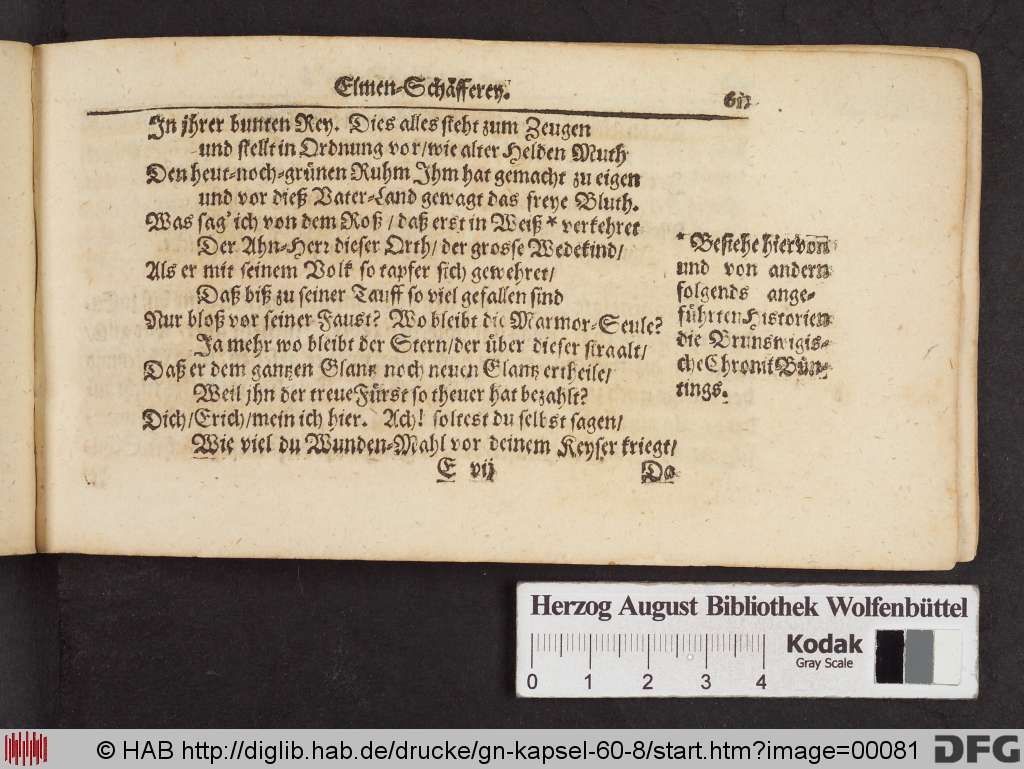 Elmen-Schäfferey.
In jhrer bunten Rey. Dies alles steht zum Zeugen
und stellt in Ordnung vor/ wie alter Helden Muth
Den heut-noch-grünen Ruhm Jhm hat gemacht zu eigen
und vor dieß Vater-Land gewagt das freye Bluth.
Was sag' ich von dem Roß / daß erst in Weiß * verkehret
Der Ahn-Herr dieser Orth/ der grosse Wedekind/
Als er mit seinem Volk so tapfer sich gewehret/
Daß biß zu seiner Tauff so viel gefallen sind
Nur bloß vor seiner Faust? Wo bleibt die Marmor-Seule?
Ja mehr wo bleibt der Stern/ der über dieser straalt/
Daß er dem gantzen Glantz noch neuen Glantz ertheile/
Weil jhn der treue Fürst so theuer hat bezahlt?
Dich/ Erich/ mein ich hier. Ach! soltest du selbst sagen/
Wie viel du Wunden-Mahl vor deinem Keyser kriegt/
E vij
Da
* Besiehe hiervon
und von andern
folgends ange-
führten Historien
die Brunswigis-
che Chronik Bün-
tings.
Herzog August Bibliothek Wolfenbüttel
Kodak
Gray Scale
0 1 2 3 4
© HAB http://diglib.hab.de/drucke/gn-kapsel-60-8/start.htm?image=00081
DFG